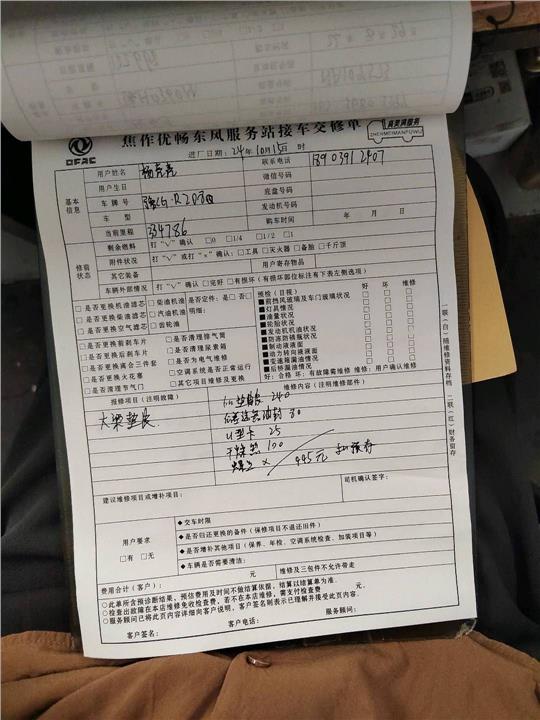 DFAC
焦作优畅东风服务站接车交修单
真美满服务
ZHENMEIMANFUWU
进厂日期：24年10月15日 时
基本信息
用户姓名
联系电话
用户生日
微信号码
车牌号
底盘号码
车型
发动机号
当前里程 334786
购车时间 年 月 日
修前状态
剩余燃料 打“√”确认 □0 □1/4 □1/2 □1
附件状况 打“√”或打“×”确认：□工具 □灭火器 □备胎 □千斤顶
其它装备
用户寄存物品
车辆外部情况 打“√”确认 □完好 □有损坏(有损坏部位标注有下表左侧选项)
□是否更换机油滤芯 □柴油机油 是否定件：是□ 否□
□是否更换柴油滤芯 □汽油机油 明细：
□是否更换空气滤芯 □齿轮油
□是否更换前刹车片 □是否清理排气筒
□是否更换后刹车片 □是否清理尿素箱
□是否更换离合三件套 □是否为电气维修
□是否更换火花塞 □空调系统是否正常运行
□是否清理节气门 □其它项目维修及更换
预检(目视) 好 坏 维修
■前挡风玻璃及车门玻璃状况 □ □ □
■灯具情况 □ □ □
■油量状况 □ □ □
■轮胎状况 □ □ □
■发动机机油状况 □ □ □
■防冻防锈液状况 □ □ □
■制动液液面 □ □ □
■动力转向液液面 □ □ □
■变速箱漏油情况 □ □ □
■后桥漏油情况 □ □ □
好：合格 坏：有故障需维修 维修：用户确认维修
报修项目(注明故障)
维修内容(注明维修部位)
大梁垫胶
240
30
U型卡 25
100
×
445元
建议维修项目或增补项目：
司机确认签字：
用户要求
□有 □无
◆交车时限
◆是否归还更换的备件(保修项目不退还旧件)
◆是否增补其他项目(保养、年检、空调系统检查、加装项目等)
◆车辆是否需要清洁：
费用合计(客户)： 元
维修及三包件不允许带走
○此单所含预诊断结果，预估费用及时间不做结算依据，结算以结算单为准。
○检查出故障在本店维修免收检查费，若不在本店维修，需支付检查费 元。
○服务顾问已将此页内容详细向客户说明，客户签名则表示已理解并接受此页内容。
客户签名： 客户电话： 服务顾问：
一联(白)随维修资料存档 二联(红)财务留存